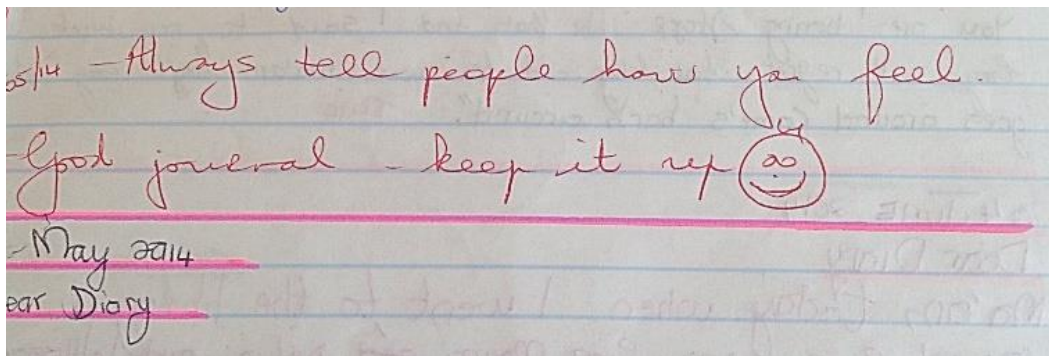 05/14 - Always tell people how you feel.
Good journal - keep it up
- May 2014
ear Diary